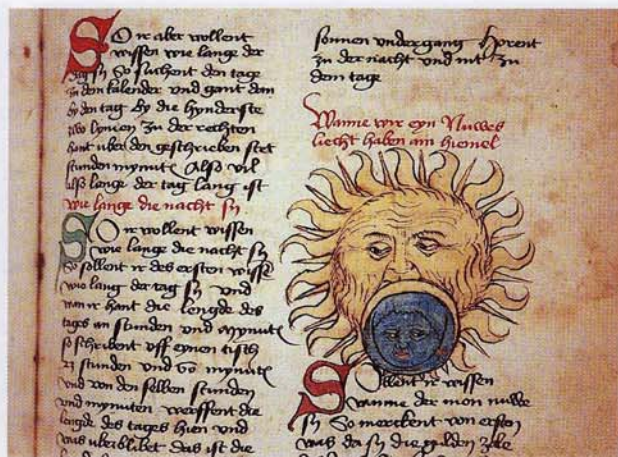 SO ir aber wollent
wissen wie lange der
tag sy So suchent den tage
in dem kalender vnd gant dan
by den tag By die hynderste
zwo lynien zu der rechten
hant vber den geschrieben stet
stunden mynut Also vil
also lenge der tag lang ist
wie lange die nacht sy
SO ir wollent wissen
wie lange die nacht sy
So sollent ir des ersten wisse
wie lang der tag sy vnd
wan ir hant die lengde des
tages an stunden vnd mynut
so schribent vff eynen tisch
23 stunden vnd 60 mynut
vnd von den selben stunden
vnd mynuten werffent die
lengde des tages hien vnd
was vberblibet das ist die
sonnen vndergang horent
zu der nacht vnd nit zu
dem tage
Wanne wir eyn Nuwes
liecht haben am hiemel
SOllent ir wissen
wanne der mon nuwe
sy So merckent von ersten
was da sy die gulden zale